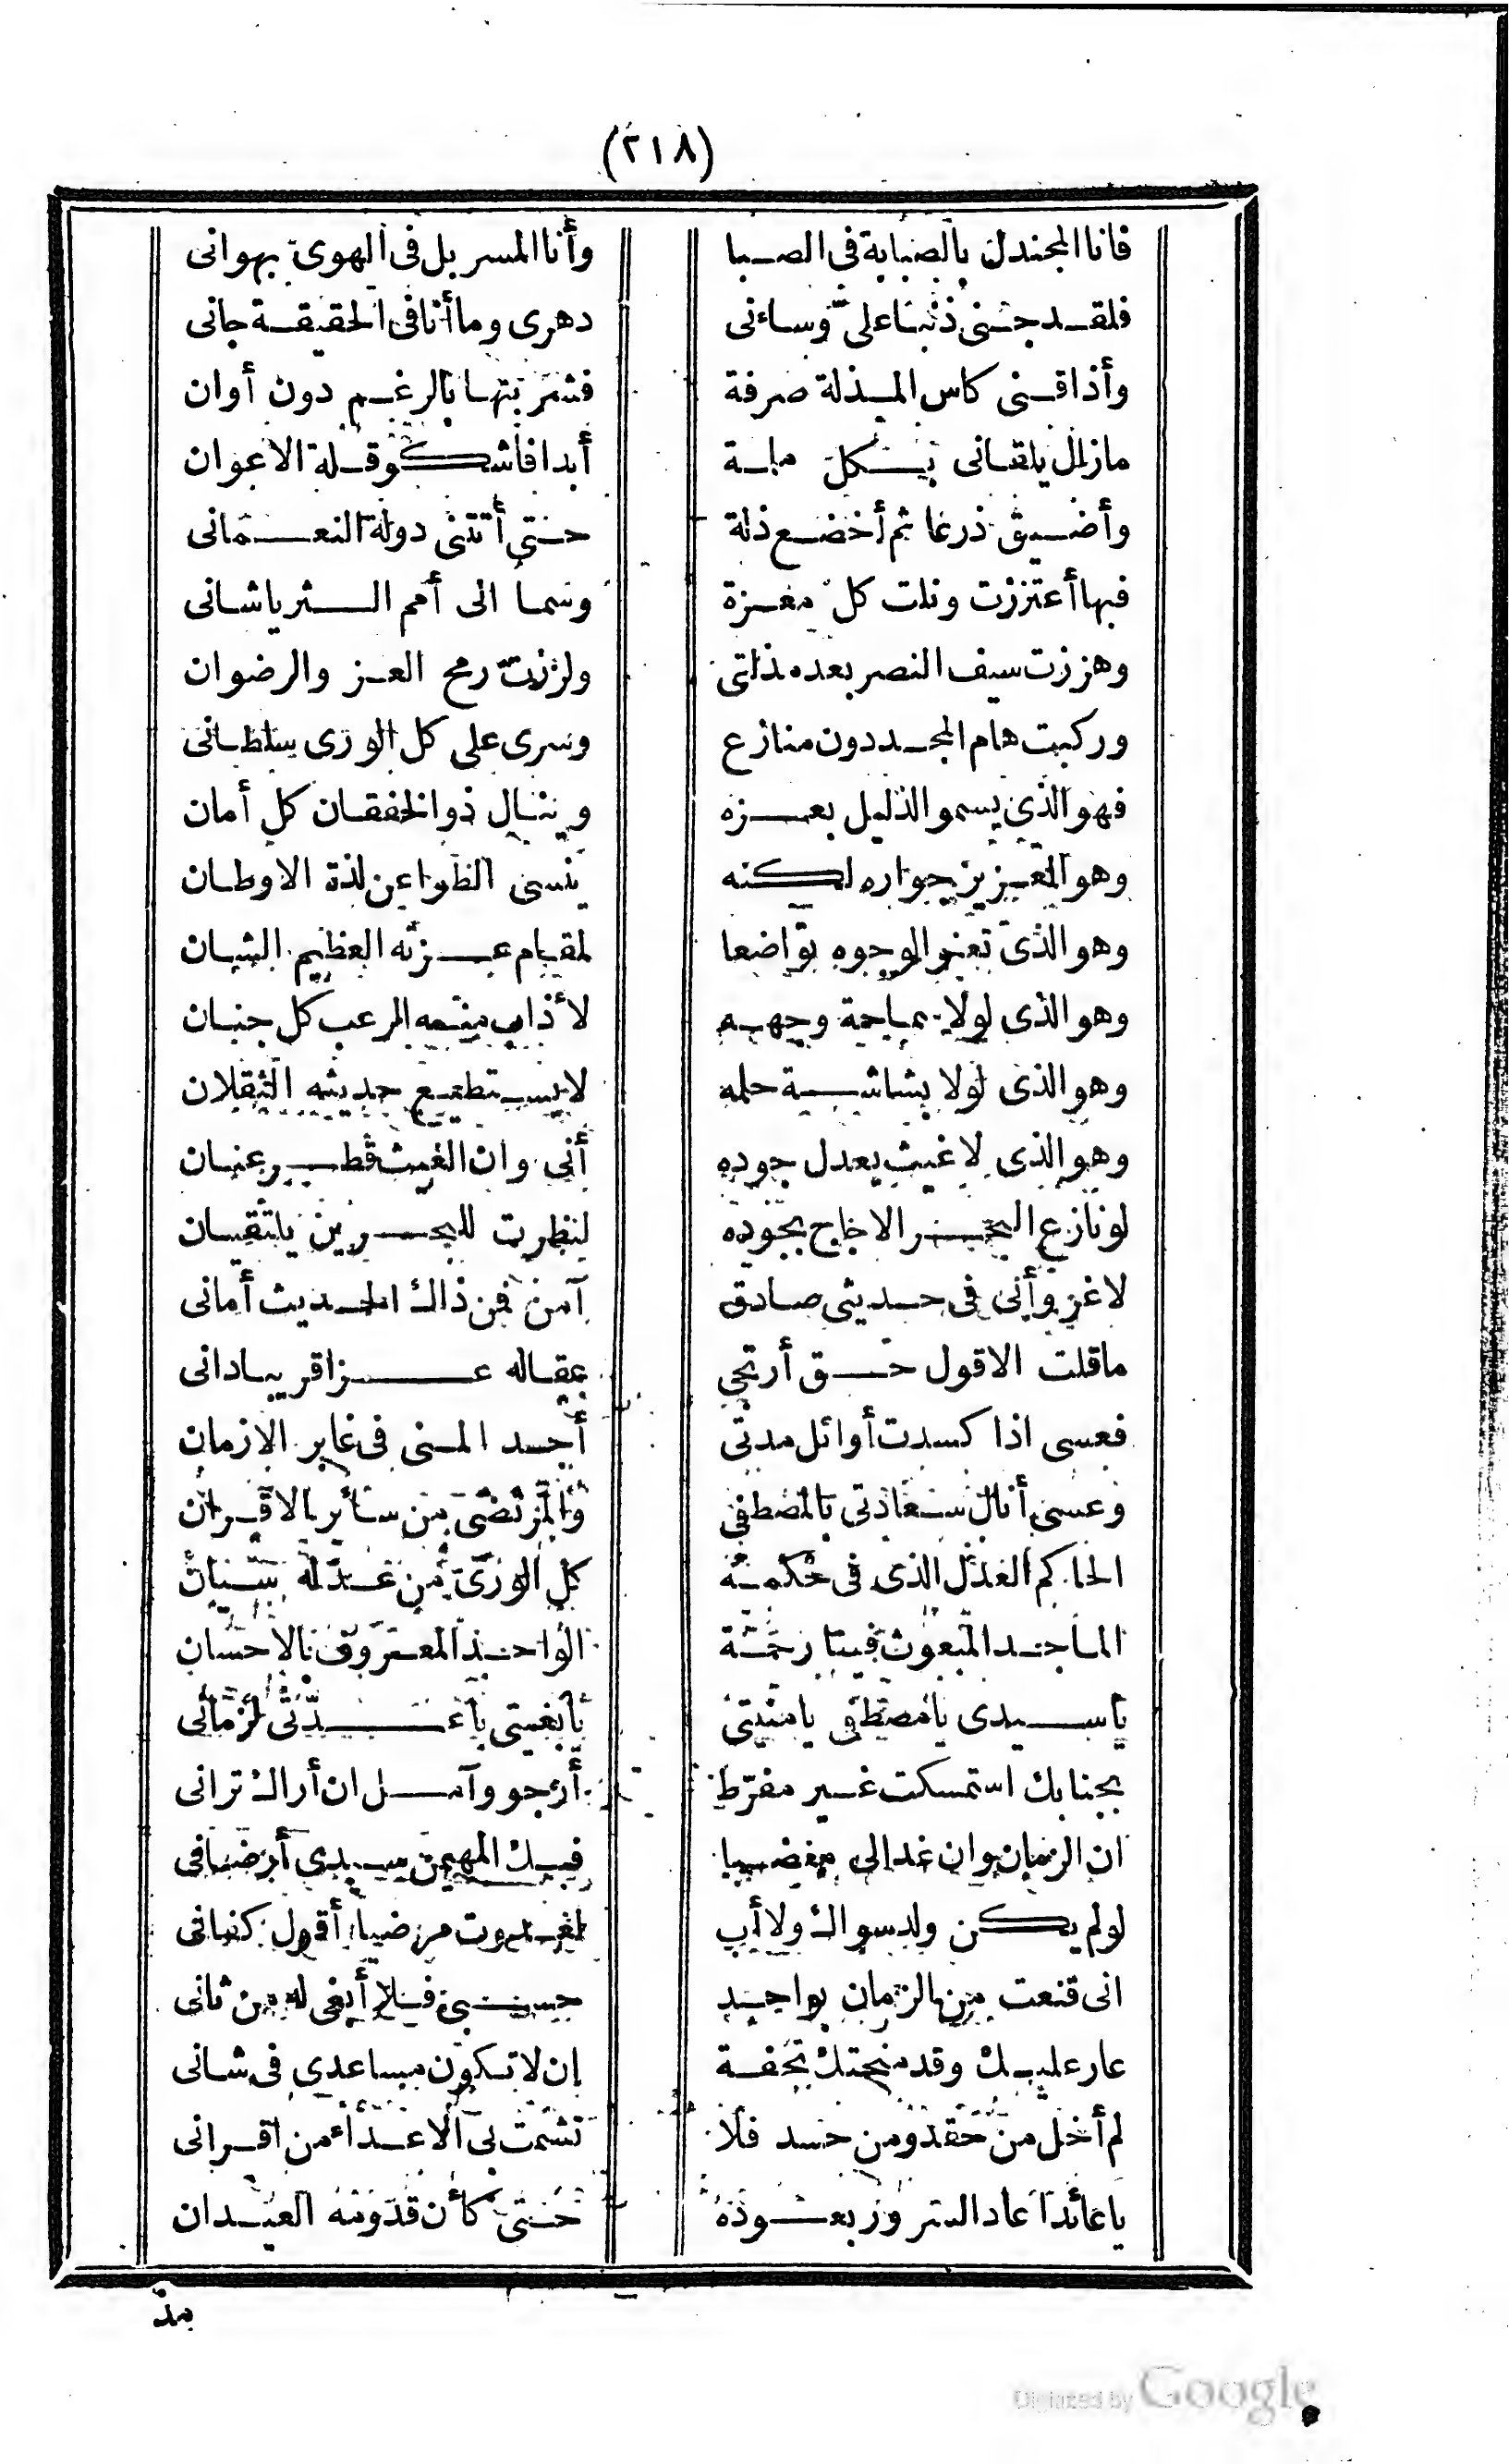 (٢١٨)
فانا المجندل بالصبابة فى الصبا وأنا المسربل فى الهوى بهوانى
فلقد جنى ذنبا على وساءنى دهرى وما أنا فى الحقيقة جانى
وأذاقنى كاس المذلة صرفة فشربتها بالرغم دون أوان
مازال يلقانى بكل ملمة أبدا فأشكو قلة الاعوان
وأضيق ذرعا ثم أخضع ذلة حتى أتتنى دولة النعمانى
فبها أعتززت ونلت كل معزة وسما الى أمم الثريا شانى
وهززت سيف النصر بعد مذلتى ولززت رمح العز والرضوان
وركبت هام المجد دون منازع وسرى على كل الورى سلطانى
فهو الذى يسمو الذليل بعزه وينال ذو الخفقان كل أمان
وهو العزيز جواره لكنه ينسى الظواعن لذة الاوطان
وهو الذى تعنو الوجوه تواضعا لمقام عزته العظيم الشان
وهو الذى لولا سماحة وجهه لأذاب منه الرعب كل جنان
وهو الذى لولا بشاشة حلمه لا يستطيع حديثه الثقلان
وهو الذى لا غيث يعدل جوده أنى وان الغيث قطر عنان
لو نازع البحر الاجاج بجوده لنظرت للبحرين يلتقيان
لا غرو أنى فى حديثى صادق آمن فمن ذاك الحديث أمانى
ما قلت الا قول حق أرتجى بمقاله عزا قريبا دانى
فعسى اذا كسدت أوائل مدتى أجد المنى فى غابر الازمان
وعسى أنال سعادتى بالمصطفى والمرتضى من سائر الاقران
الحاكم العدل الذى فى حكمه كل الورى من عدله سيان
الماجد المبعوث فينا رحمة الواحد المعروف بالاحسان
يا سيدى يا مصطفى يا منيتى يا بغيتى يا عدتى لزمانى
بجنابك استمسكت غير مفرّط أرجو وآمل ان أراك ترانى
ان الزمان وان غدا لى مغضبا فبك المهيمن سيدى أرضانى
لو لم يكن ولد سواك ولا أب لغدوت مرضيا أقول كفانى
انى قنعت من الزمان بواحد حسبى فلا أبغى له من ثانى
عار عليك وقد منحتك تحفة ان لا تكون مساعدى فى شانى
لم أخل من حقد ومن حسد فلا تشمت بى الاعداء من اقرانى
يا عائدا عاد السرور بعوده حتى كأن قدومه العيدان
مذ
Digitized by Google